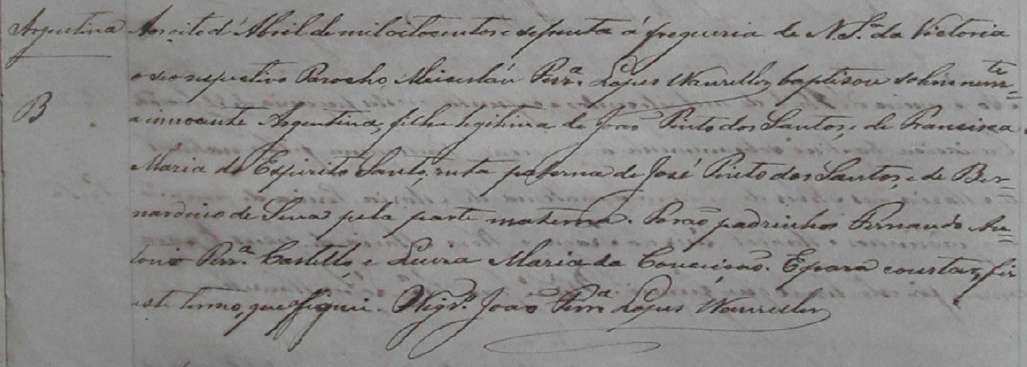 Argentina
B
Aos oito d'Abril de mil oito centos e septenta á freguesia de N. Sª. da Victoria
o respectivo Parocho, Perrª. Lopes baptisou solemnem=te
a innocente Argentina, filha legitima de João Pinto dos Santos, e de Francisca
Maria do Espirito Santo, neta paterna de José Pinto dos Santos, e de Ber=
nardino de Sena pela parte materna. Forão padrinhos Fernando An=
tonio Perrª. Castello, e Luiza Maria da Conceicão. E para constar, fiz
este termo, que Vigrº. João Perrª Lopes